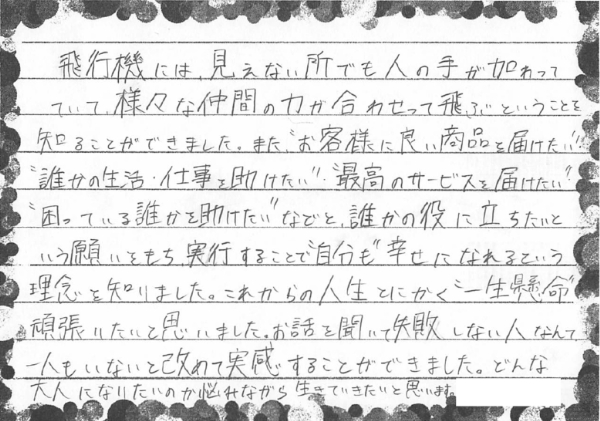 飛行機には、見えない所でも人の手が加わって
ていて、様々な仲間の力が合わせって飛ぶということを
知ることができました。また、"お客様に良い商品を届けたい"
"誰かの生活・仕事を助けたい"、"最高のサービスを届けたい"
"困っている誰かを助けたい"などと、誰かの役に立ちたいと
いう願いをもち、実行することで"自分も"幸せになれるという
理念を知りました。これからの人生とにかく"一生懸命"
頑張りたいと思いました。お話を聞いて失敗しない人なんて
一人もいないと改めて実感することができました。どんな
大人になりたいのか悩みながら生きていきたいと思います。